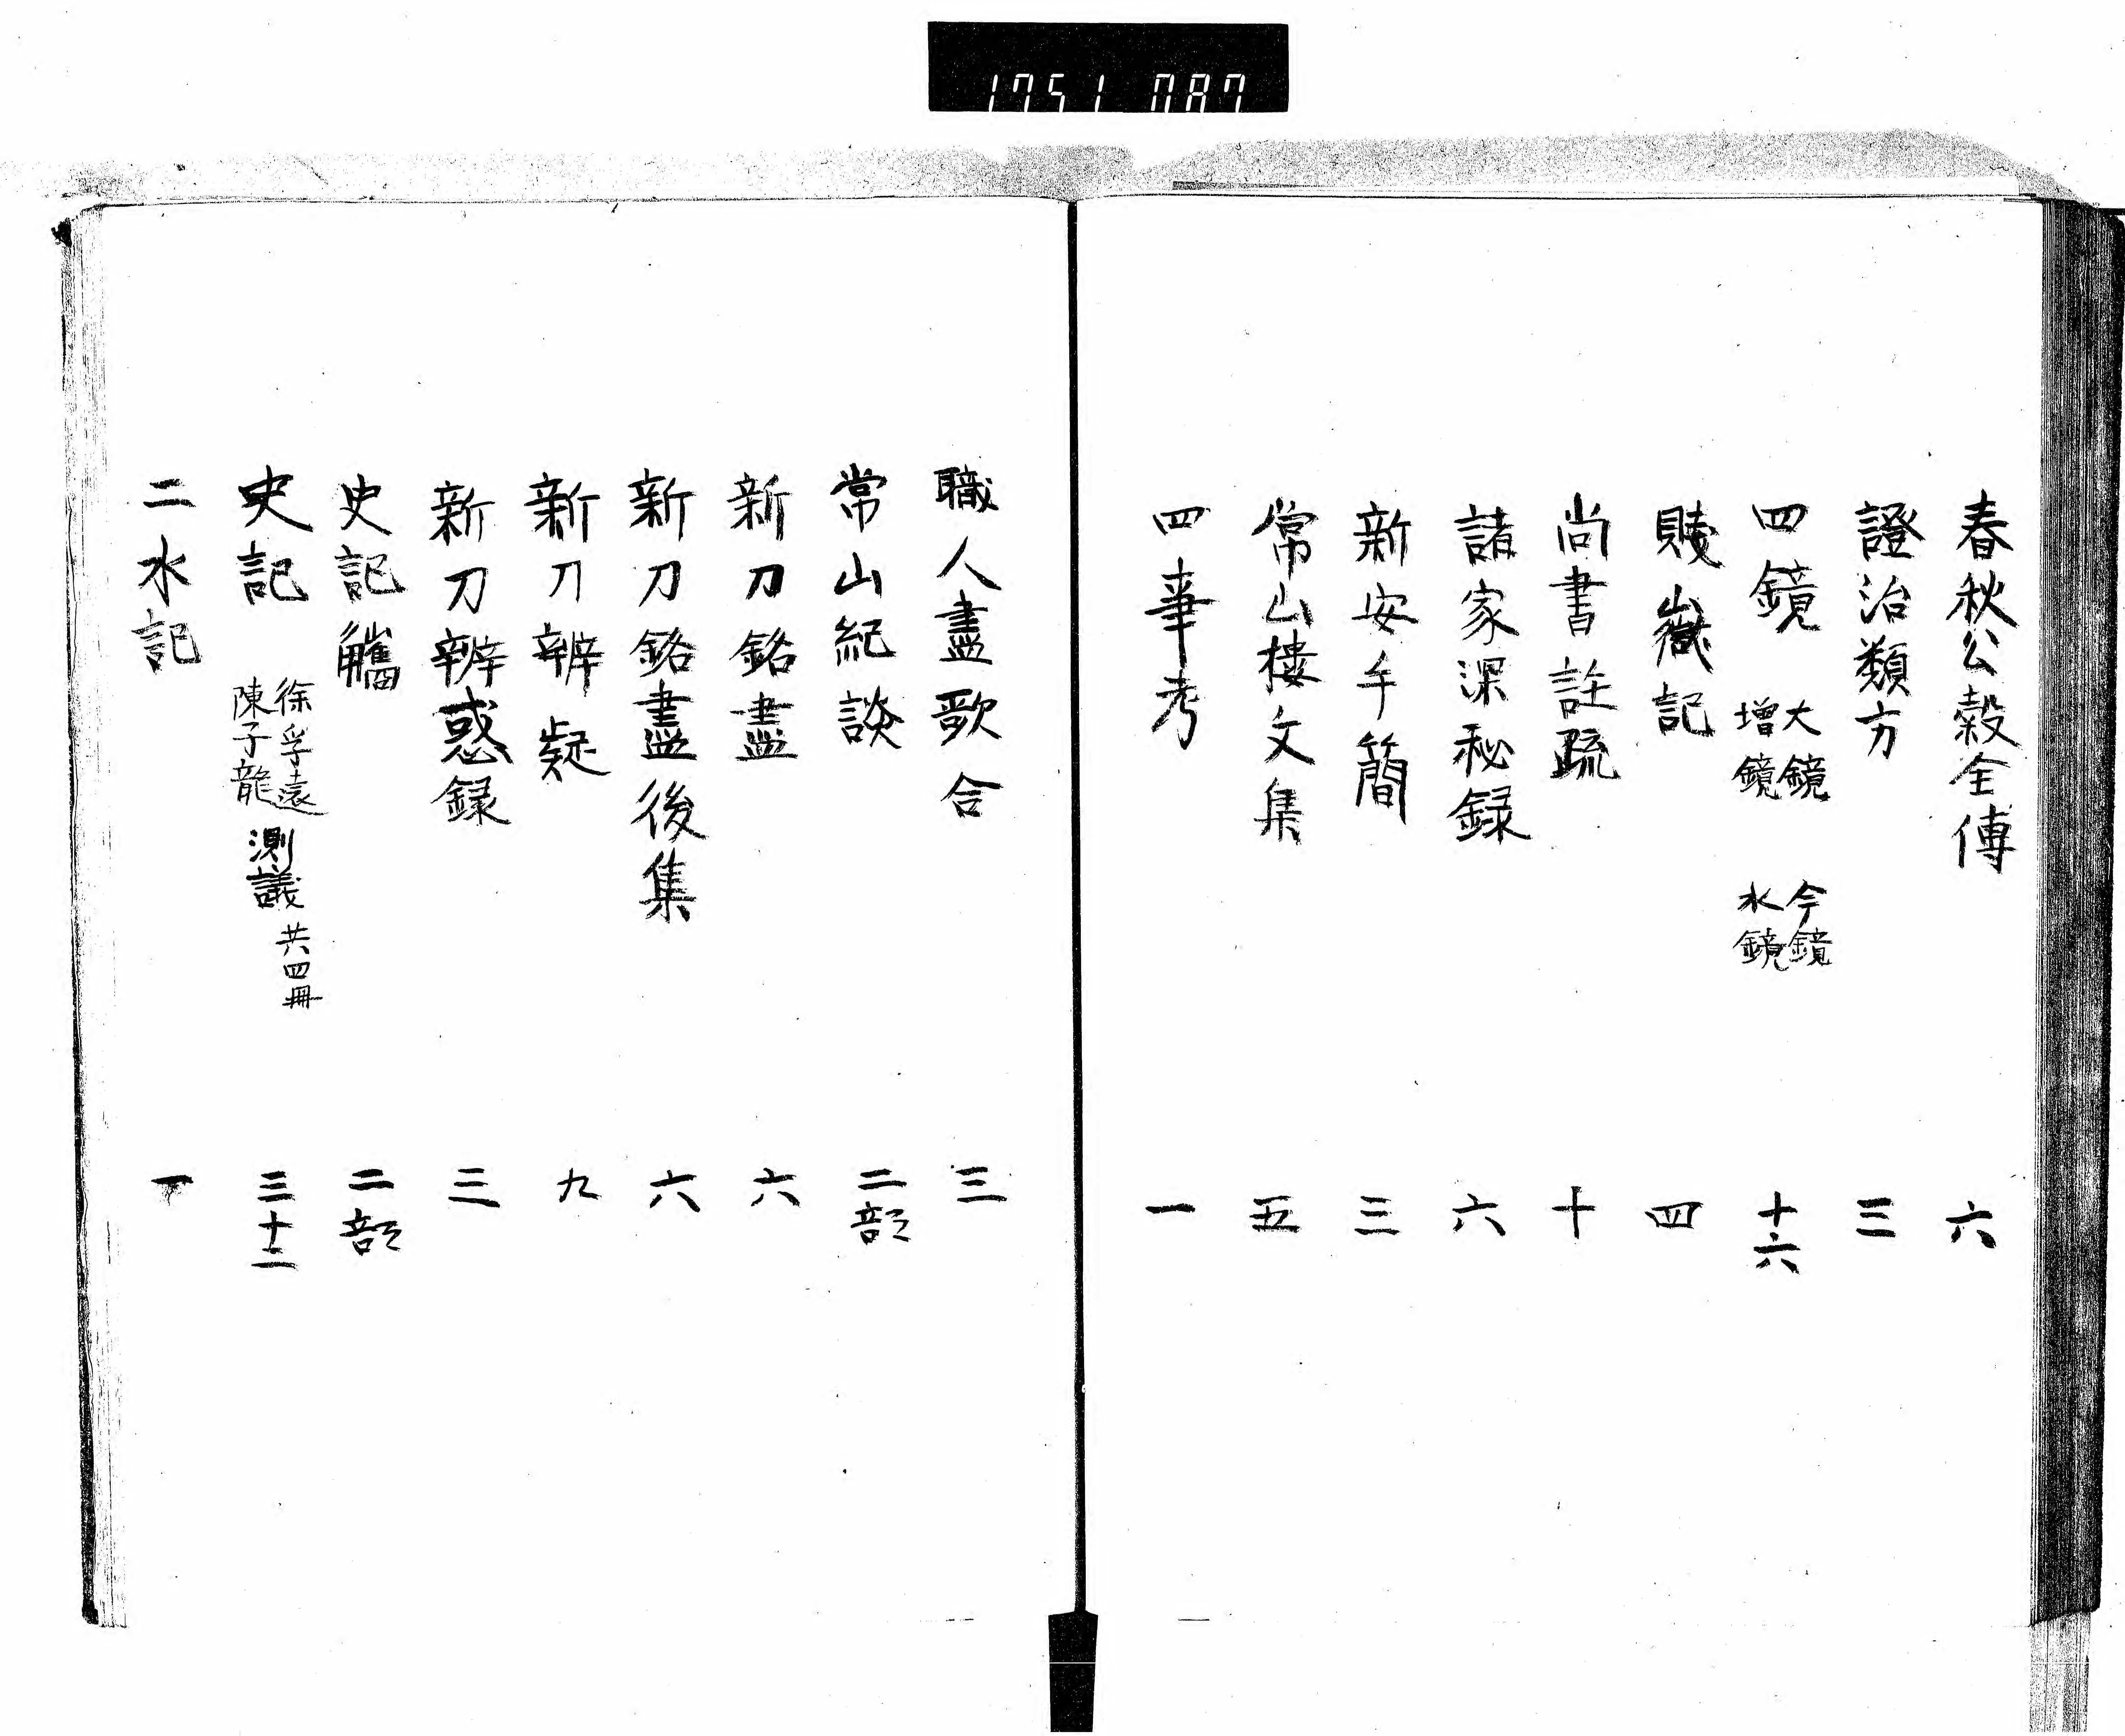 1751 087
春秋公穀全傳 六
證治類方 三
四鏡 大鏡 増鏡 今鏡 水鏡 十六
賤嶽記 四
尚書註疏 十
諸家深秘録 六
新安手簡 三
常山樓文集 五
四事考 一
職人盡歌合 三
常山紀談 二部
新刀銘盡 六
新刀銘盡後集 六
新刀辨疑 九
新刀辨惑録 三
史記觽 二部
史記 徐孚遠 陳子龍 測議 共四冊 三十二
二水記 一